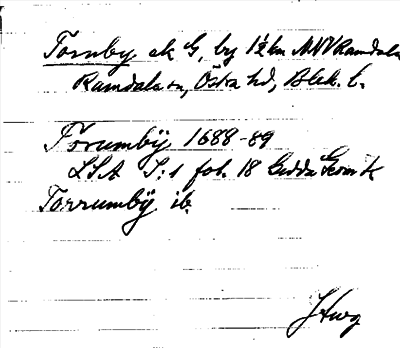 Tornby ek G, by 1½ km NNV Ramdala
Ramdala sn, Östra hd, Blek. l.
Torumbÿ 1688-89
LSA I:1 fol. 18 Gedda
Torrumbÿ ib.